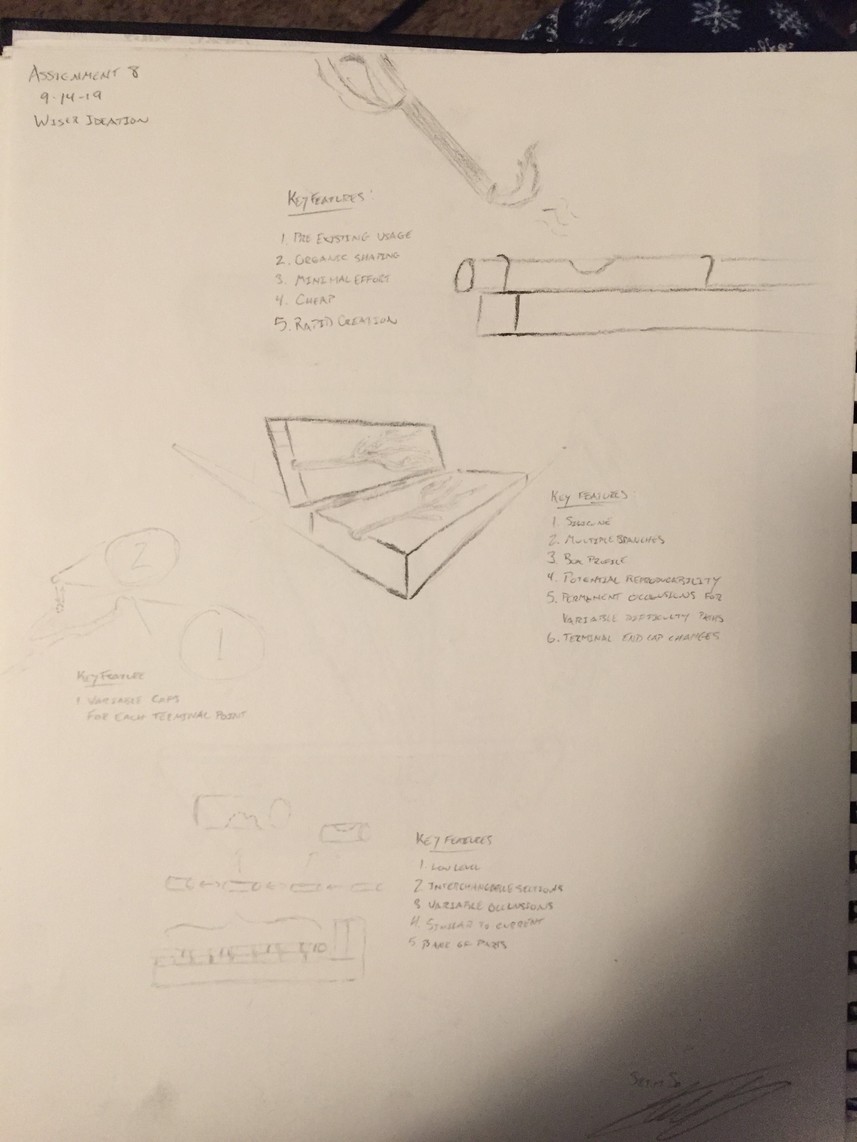 ASSIGNMENT 8
9-14-19
WISER IDEATION
KEY FEATURES
1. PRE EXISTING USAGE
2. ORGANIC SHAPING
3. MINIMAL EFFORT
4. CHEAP
5. RAPID CREATION
KEY FEATURES
1 SILICONE
2. MULTIPLE BRANCHES
3. BOX PROFILE
4. POTENTIAL REPRODUCABILITY
5. PERMANENT OCCLUSIONS FOR
VARIABLE DIFFICULTY PATHS
6. TERMINAL END CAP CHANGES
2
1
KEY FEATURE
1 VARIABLE CAPS
FOR EACH TERMINAL POINT
KEY FEATURES
1 LOW LEVEL
2 INTERCHANGABLE SECTIONS
3 VARIABLE OCCLUSIONS
4 SIMILAR TO CURRENT
5 OF PARTS